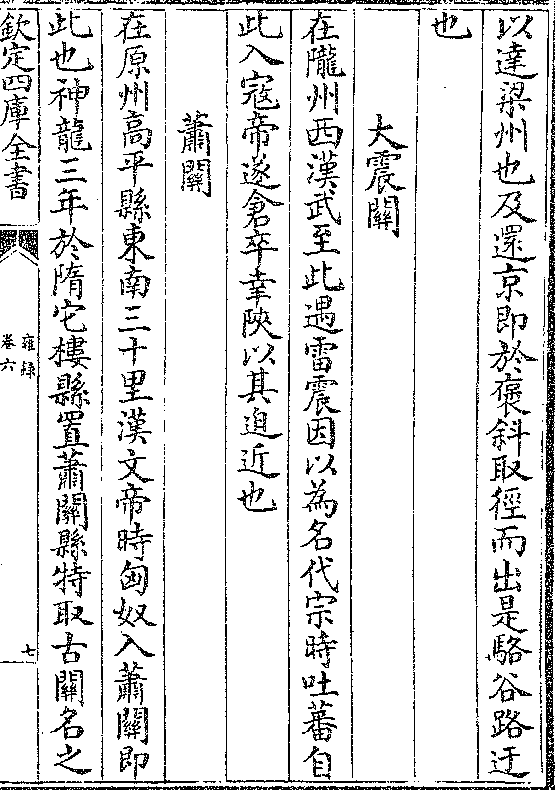 以達梁州也及還京即於褒斜取徑而出是駱谷路迂
也
大震關
在隴州西漢武至此遇雷震因以為名代宗時吐蕃自
此入寇帝遂倉卒幸陜以其迫近也
蕭關
在原州高平縣東南三十里漢文帝時匈奴入蕭關即
此也神龍三年於隋它樓縣置蕭關縣特取古關名之
欽定四庫全書
雍録
卷六
七